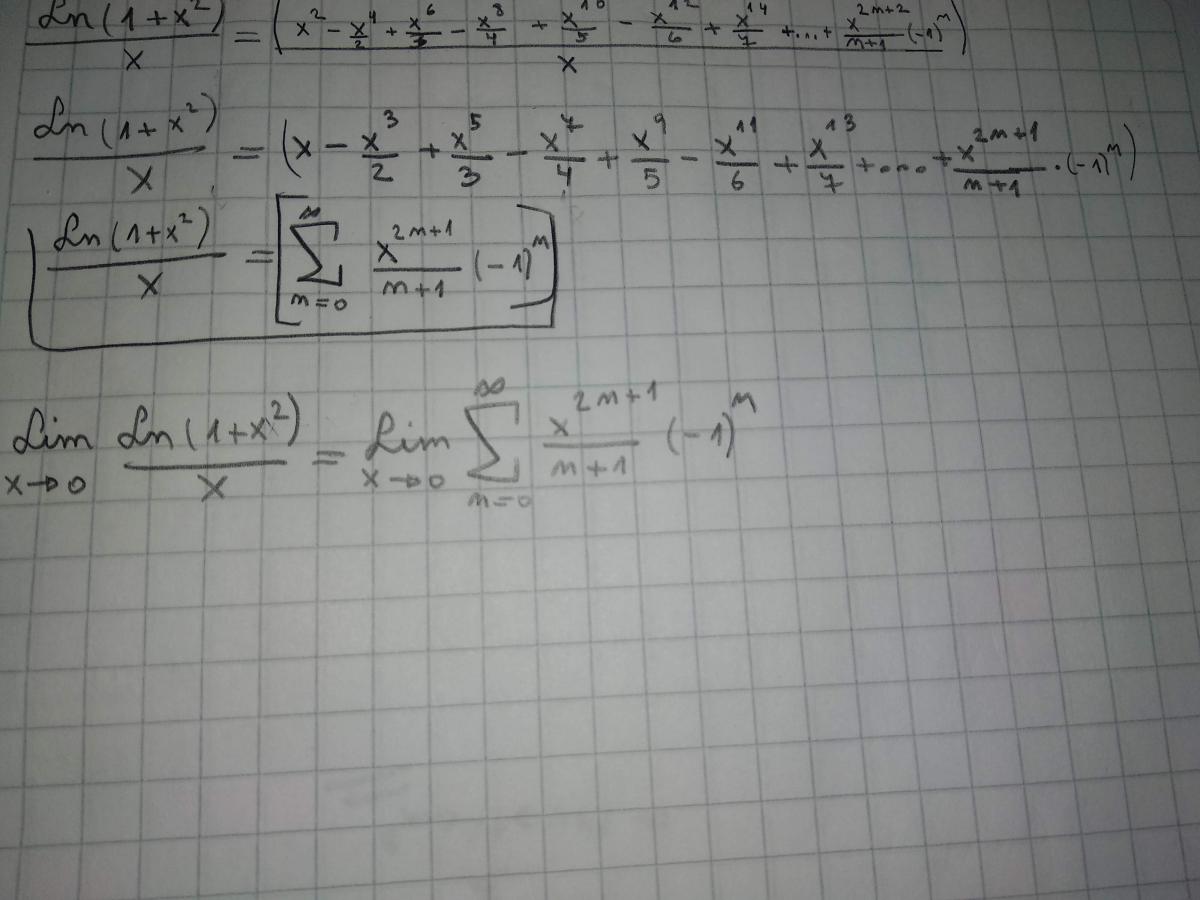 Ln(1+x²)/x = (x² - x⁴/2 + x⁶/3 - x⁸/4 + x¹⁰/5 - x¹²/6 + x¹⁴/7 + ... + x²ⁿ⁺²/n+1 (-1)ⁿ)/x
Ln(1+x²)/x = (x - x³/2 + x⁵/3 - x⁷/4 + x⁹/5 - x¹¹/6 + x¹³/7 + .... + x²ⁿ⁺¹/n+1 · (-1)ⁿ)
Ln(1+x²)/x = [∞ Σ n=0 x²ⁿ⁺¹/n+1 (-1)ⁿ]
Lim x→0 Ln(1+x²)/x = Lim x→0 ∞ Σ n=0 x²ⁿ⁺¹/n+1 (-1)ⁿ